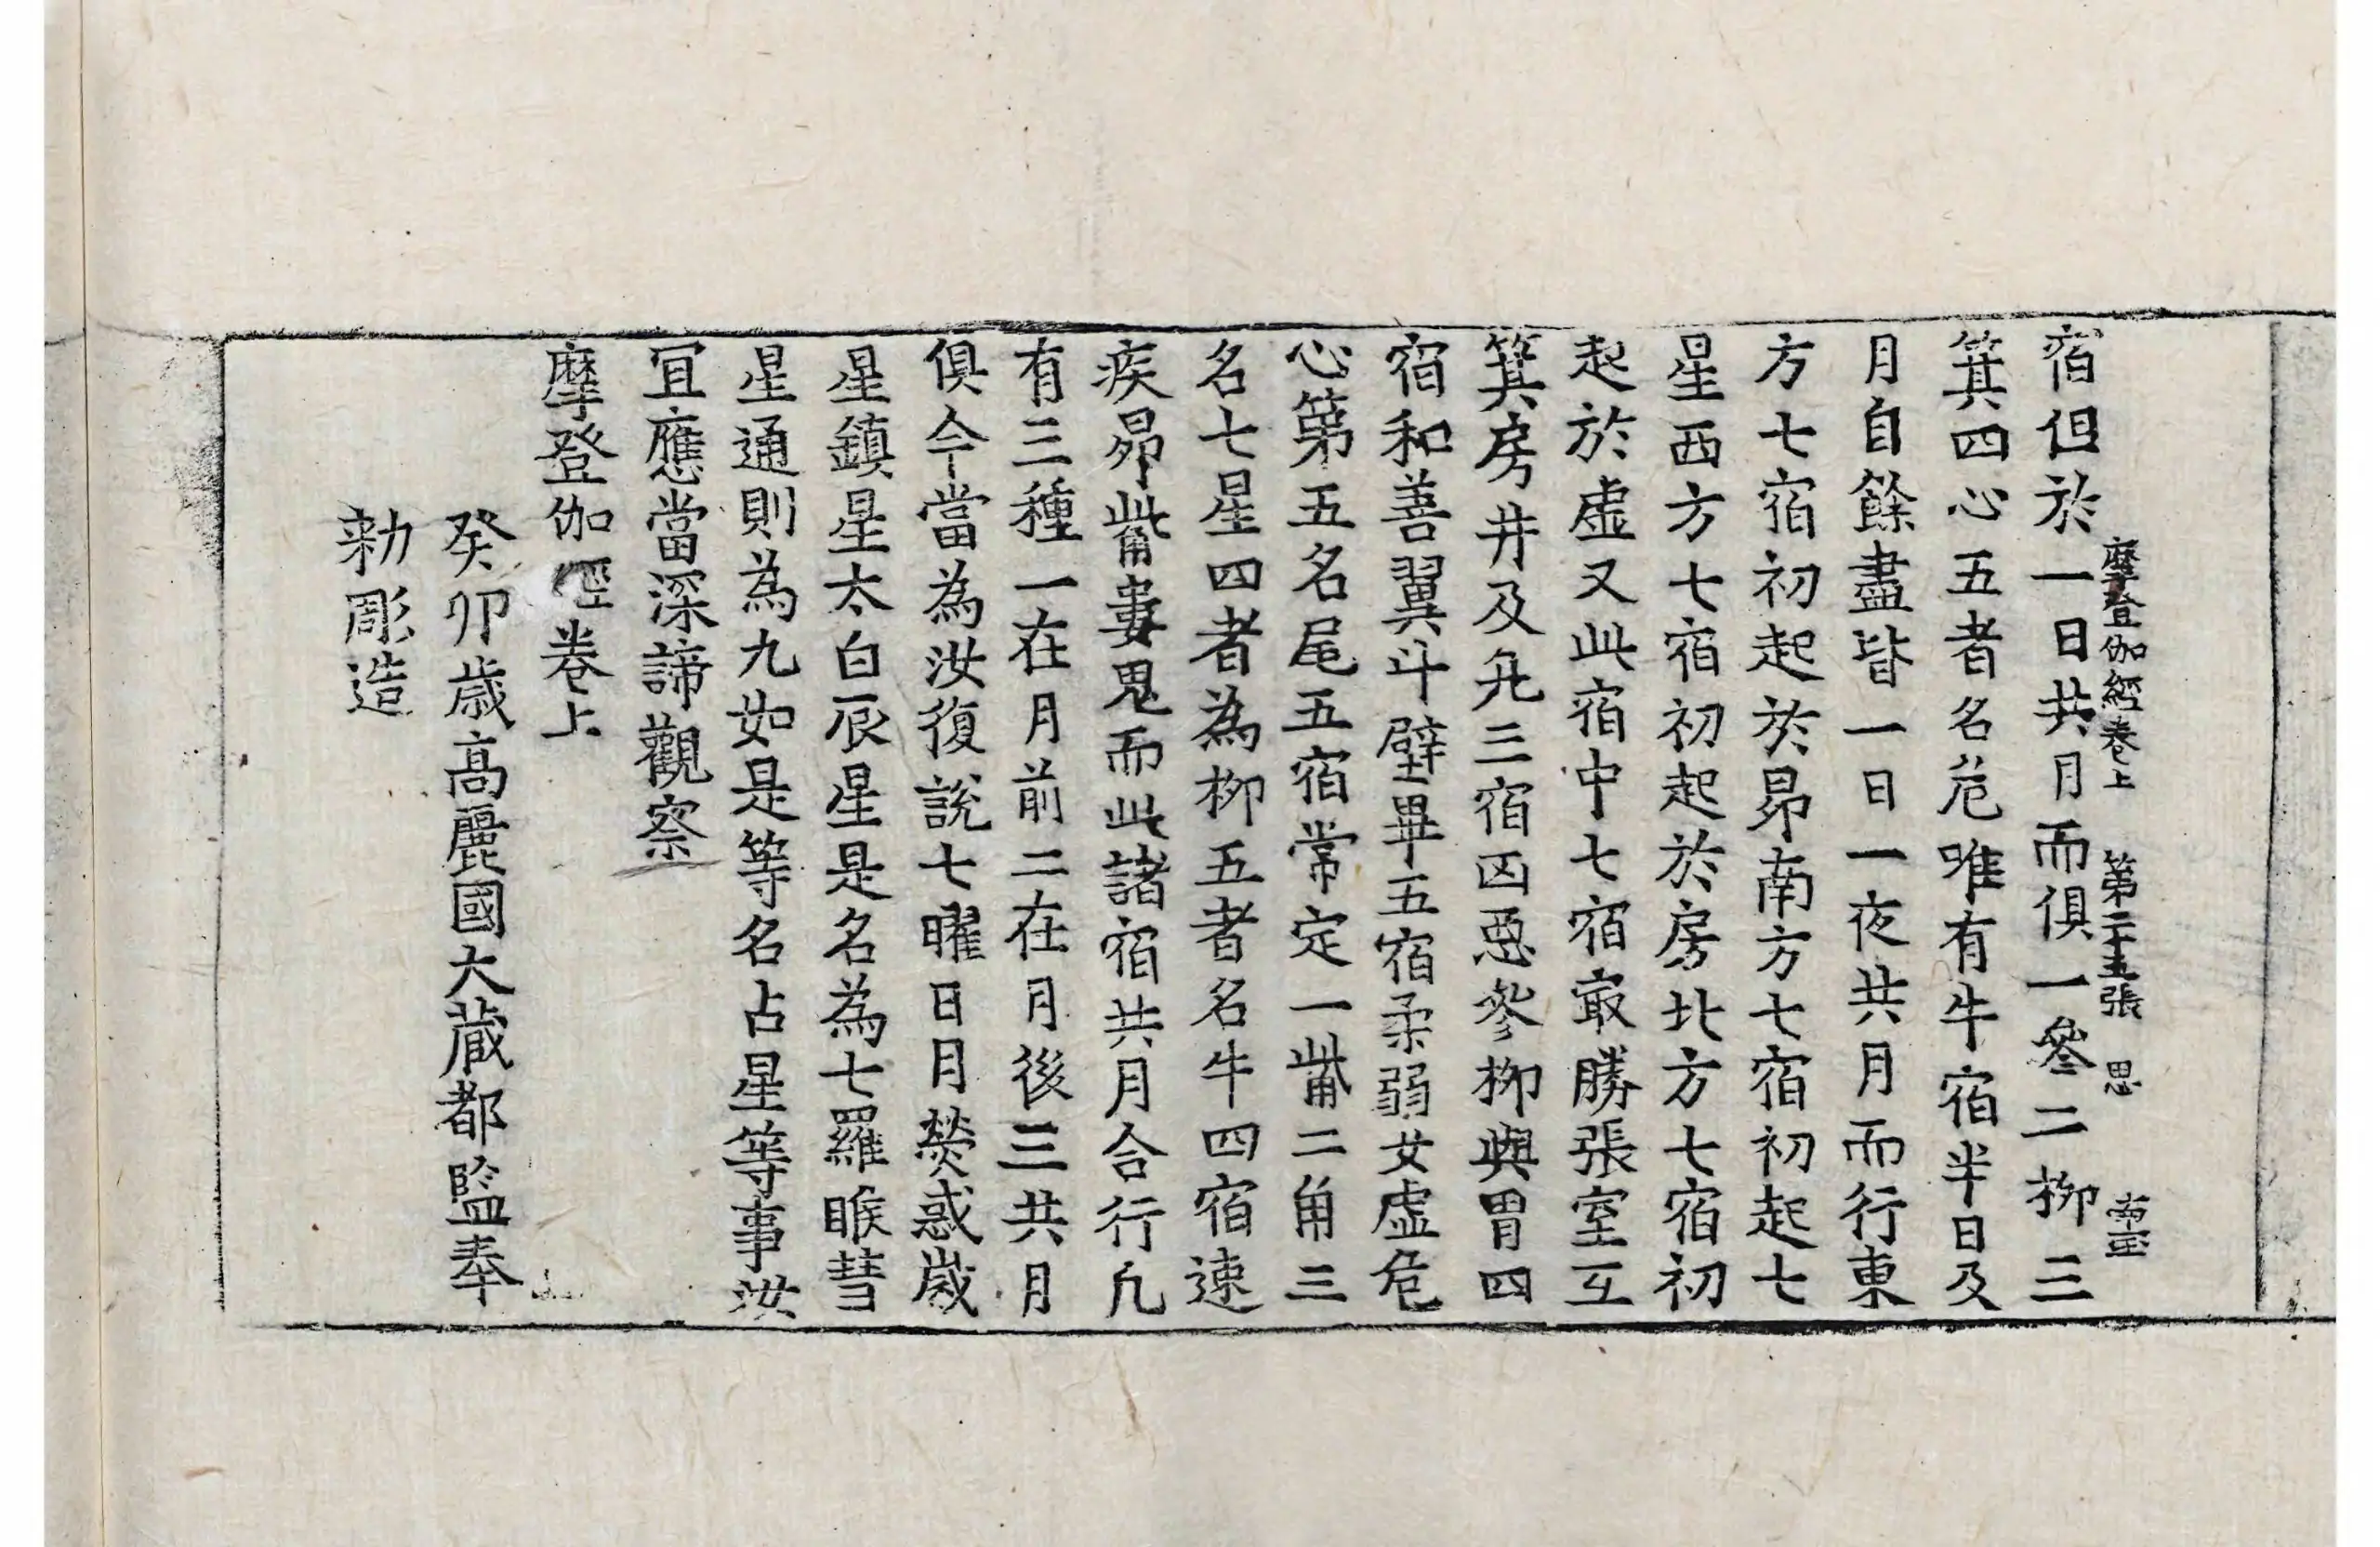 摩登伽經卷上 第二十五張 思
宿但於一日共月而俱一參二柳三
箕四心五者名危唯有牛宿半日及
月自餘盡皆一日一夜共月而行東
方七宿初起於昴南方七宿初起七
星西方七宿初起於房北方七宿初
起於虛又此宿中七宿冣勝張室互
箕房井及𠃵三宿凶惡參柳與胃四
宿和善翼斗壁畢五宿柔弱女虛危
心第五名尾五宿常定一觜二角三
名七星四者為柳五者名牛四宿速
疾昴觜婁鬼而此諸宿共月合行凡
有三種一在月前二在月後三共月
俱今當為汝復說七曜日月熒惑歲
星鎮星太白辰星是名為七羅睺彗
星通則為九如是等名占星等事汝
冝應當深諦觀察
摩登伽經卷上
癸卯歲高麗國大藏都監奉
勑彫造